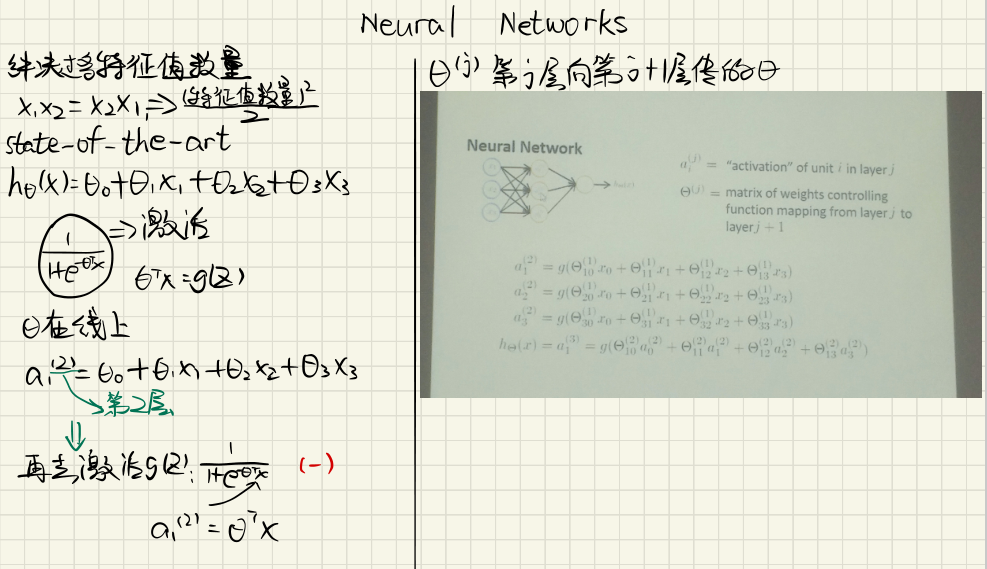 Neural Networks
解决过多特征值数量
x₁x₂ = x₂x₁ ⇒ (特征值数量)²/2
state-of-the-art
hθ(x)=θ₀+θ₁x₁+θ₂x₂+θ₃x₃
1/(1+e^(-θᵀx)) ⇒ 激活
θᵀx = g(z)
θ在线上
a₁⁽²⁾ = θ₀+θ₁x₁+θ₂x₂+θ₃x₃
第2层
再去激活g(z): 1/(1+e^(-θᵀx)) (-)
a₁⁽²⁾ = θᵀx
θ⁽ʲ⁾ 第j层向第j+1层传的θ
Neural Network
aᵢ⁽ʲ⁾ = "activation" of unit i in layer j
Θ⁽ʲ⁾ = matrix of weights controlling
function mapping from layer j to
layer j + 1
a₁⁽²⁾ = g(Θ₁₀⁽¹⁾x₀ + Θ₁₁⁽¹⁾x₁ + Θ₁₂⁽¹⁾x₂ + Θ₁₃⁽¹⁾x₃)
a₂⁽²⁾ = g(Θ₂₀⁽¹⁾x₀ + Θ₂₁⁽¹⁾x₁ + Θ₂₂⁽¹⁾x₂ + Θ₂₃⁽¹⁾x₃)
a₃⁽²⁾ = g(Θ₃₀⁽¹⁾x₀ + Θ₃₁⁽¹⁾x₁ + Θ₃₂⁽¹⁾x₂ + Θ₃₃⁽¹⁾x₃)
hΘ(x) = a₁⁽³⁾ = g(Θ₁₀⁽²⁾a₀⁽²⁾ + Θ₁₁⁽²⁾a₁⁽²⁾ + Θ₁₂⁽²⁾a₂⁽²⁾ + Θ₁₃⁽²⁾a₃⁽²⁾)